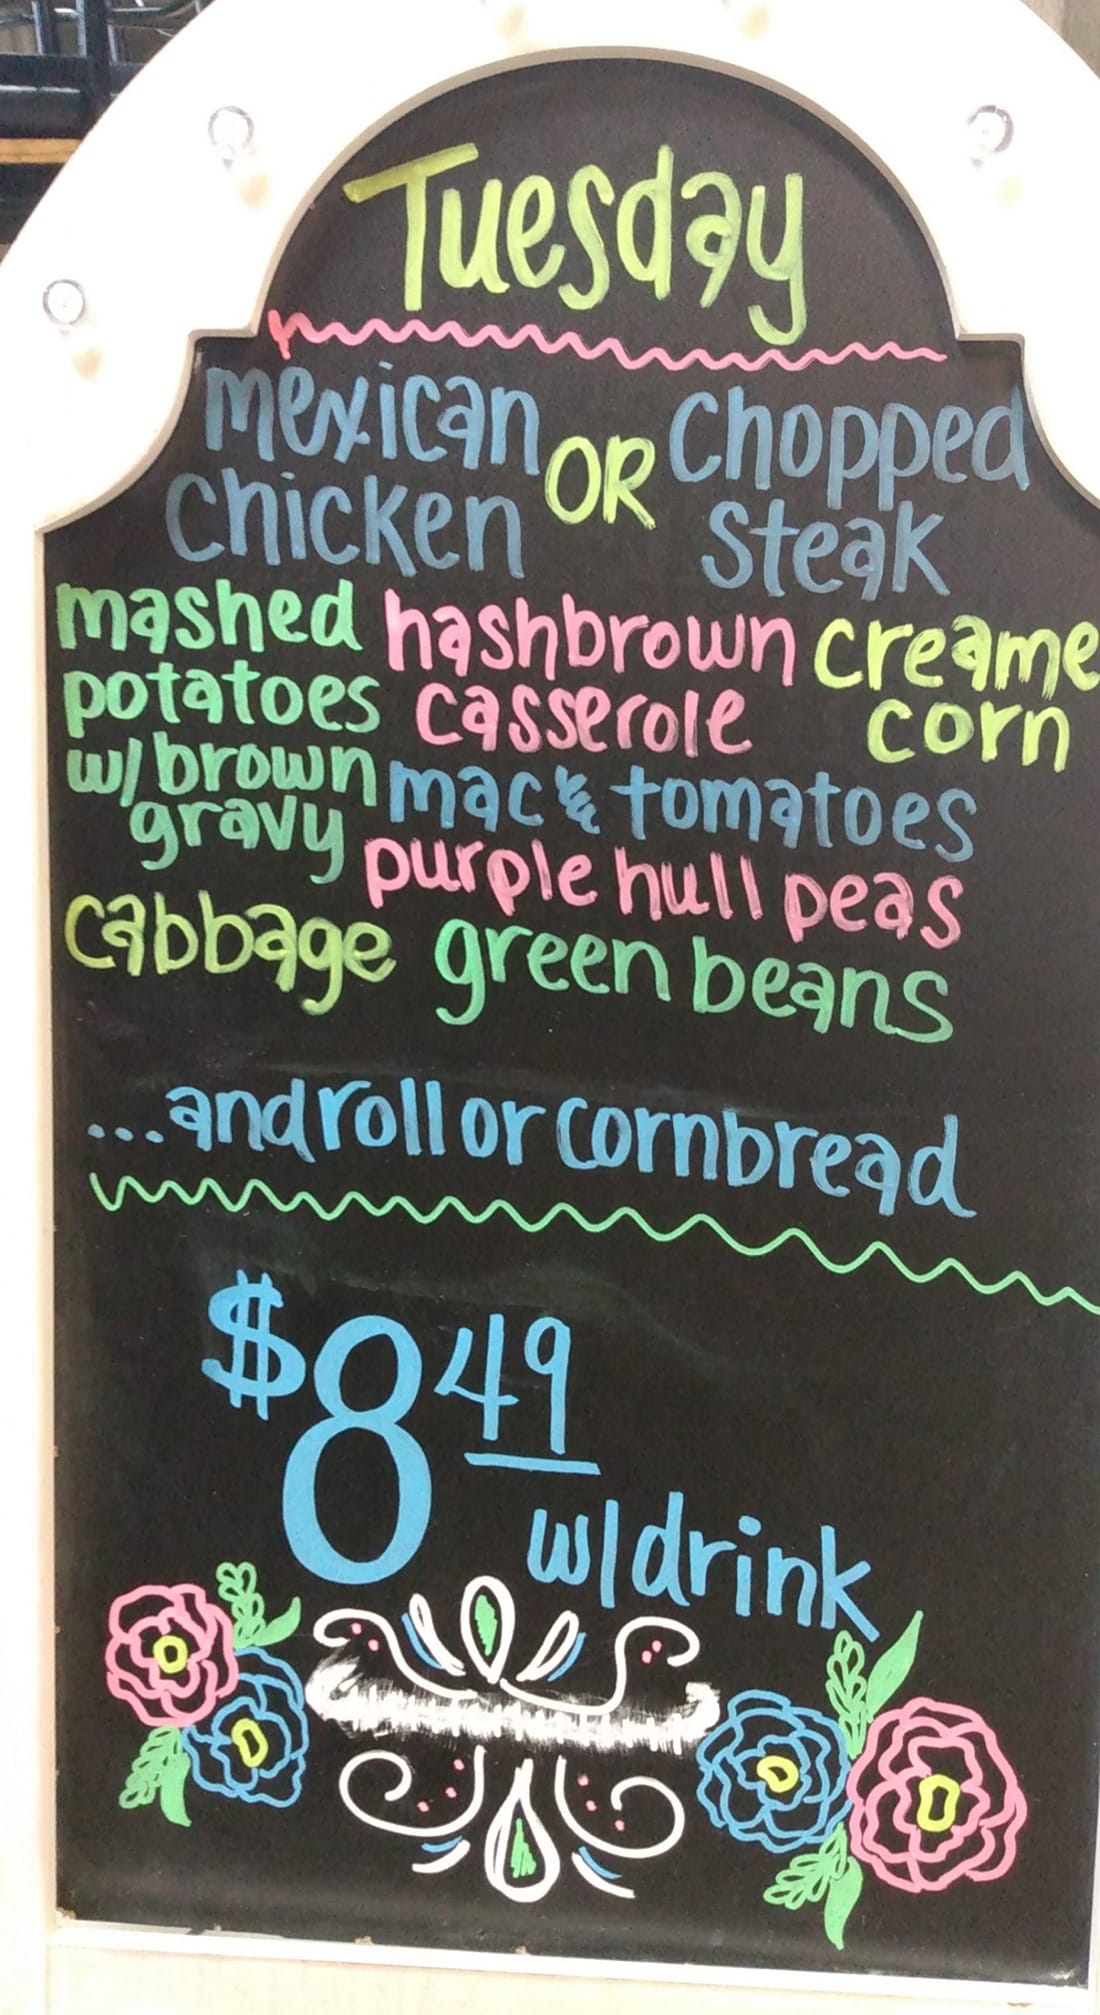 Tuesday
mexican OR Chopped
chicken steak
mashed hashbrown creame
potatoes casserole corn
w/ brown mac & tomatoes
gravy purple hull peas
cabbage green beans
...and roll or cornbread
$8.49
w/ drink